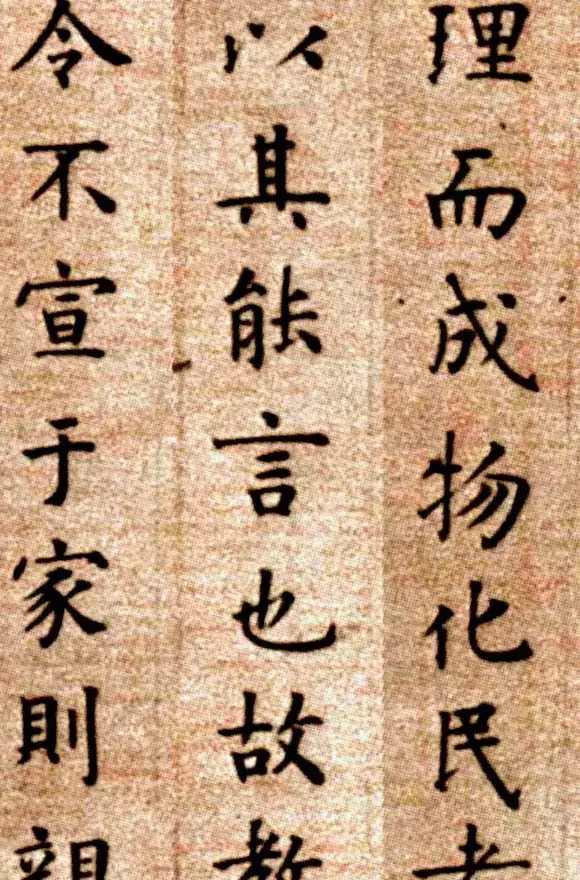 理而成物化民
以其能言也故教
令不宣于家則親